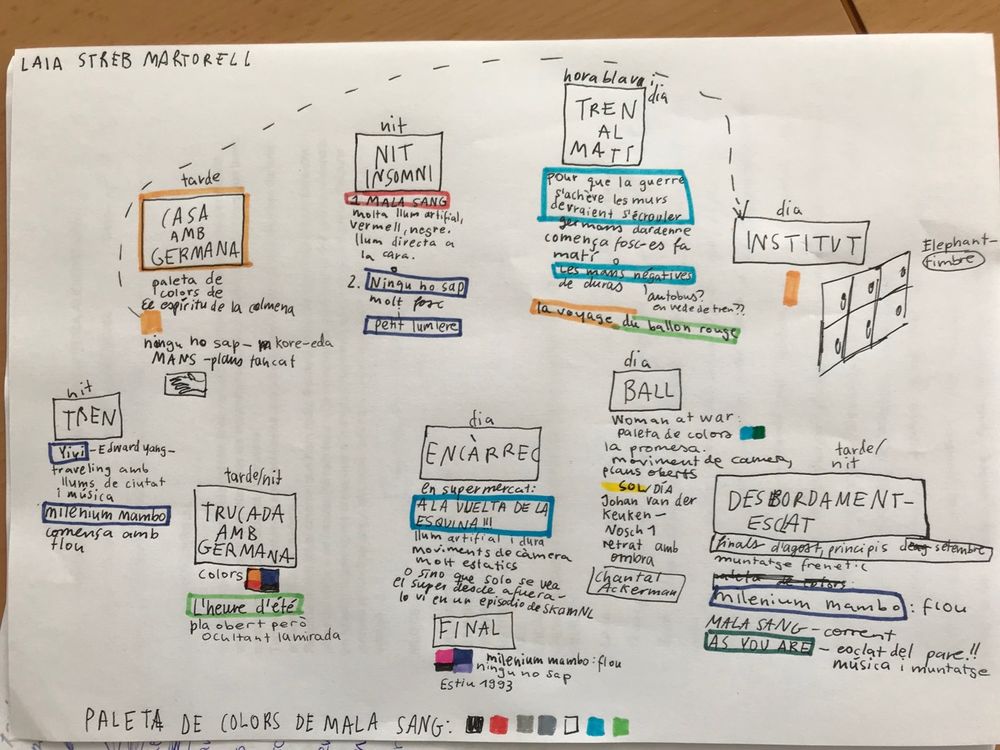 LAIA STREB MARTORELL
tarde
CASA
AMB
GERMANA
paleta de
colors de
El espíritu de la colmena
ningu ho sap - kore-eda
MANS - plans tancat
nit
NIT
INSOMNI
1 MALA SANG
molta llum artificial,
vermell, negre.
llum directa a
la cara.
o
2. Ningu ho sap
molt fosc
petit lumiere
hora blava i
dia
TREN
AL
MATÍ
pour que la guerre
s'achève les murs
devraient s'écrouler
germans dardenne
comença fosc-es fa
matí o
Les mans négatives
de duras
autobus?
en vede de tren??
la voyage du ballon rouge
dia
INSTITUT
Elephant-
timbre
nit
TREN
Yiyi - Edward yang -
traveling amb
llums de ciutat
i música
milenium mambo
comença amb
flou
tarde/nit
TRUCADA
AMB
GERMANA
colors
L'heure d'été
pla obert però
ocultant la mirada
dia
ENCÀRREC
en supermercat:
A LA VUELTA DE LA
ESQUINA!!!
llum artificial i dura
moviments de càmera
molt estatics
o sino que solo se vea
el super desde afuera -
lo vi en un episodio de SKAM NL
FINAL
milenium mambo: flou
ningu no sap
Estiu 1993
dia
BALL
Woman at war:
paleta de colors
la promesa.
moviment de camera,
plans oberts
SOL/DÍA
Johan van der
Keuken -
Nosch 1
retrat amb
ombra
Chantal
Ackerman
tarde/
nit
DESBORDAMENT-
ESCLAT
finals d'agost, principis de setembre
muntatge frenetic
paleta de colors:
milenium mambo: flou
MALA SANG - corrent
AS YOU ARE - esclat del pare!!
música i muntatge
PALETA DE COLORS DE MALA SANG: